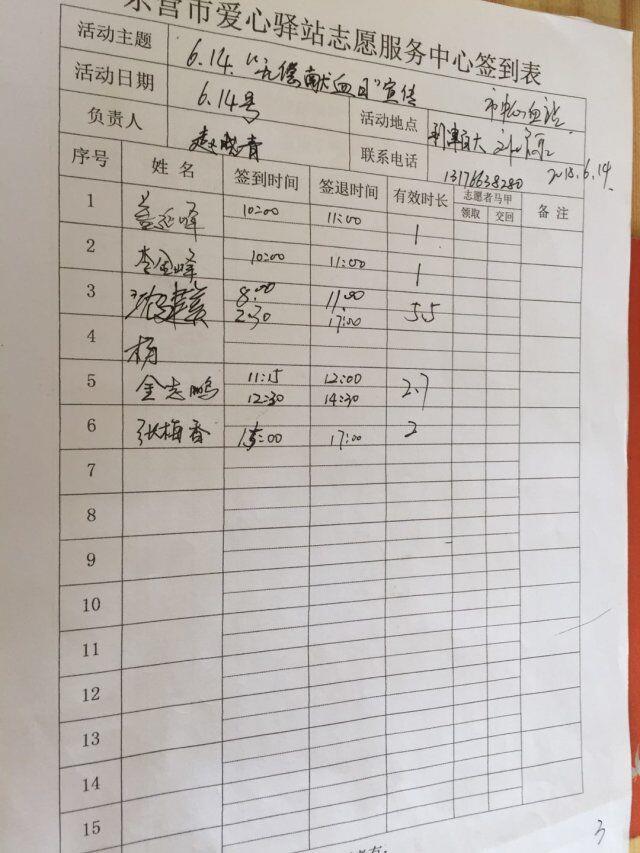 东营市爱心驿站志愿服务中心签到表
活动主题 6.14.“无偿献血日”宣传
活动日期 6.14号 活动地点 市中心血站
负责人 联系电话 13176638280 2018.6.14.
序号 姓名 签到时间 签退时间 有效时长 志愿者马甲 备注
领取 交回
1 10:00 11:00 1
2 10:00 11:00 1
3 8:00 11:00 5.5
2:30 17:00
4 杨
5 金志鹏 11:15 12:00 2.7
12:30 14:30
6 张梅香 15:00 17:00 2
7
8
9
10
11
12
13
14
15
3